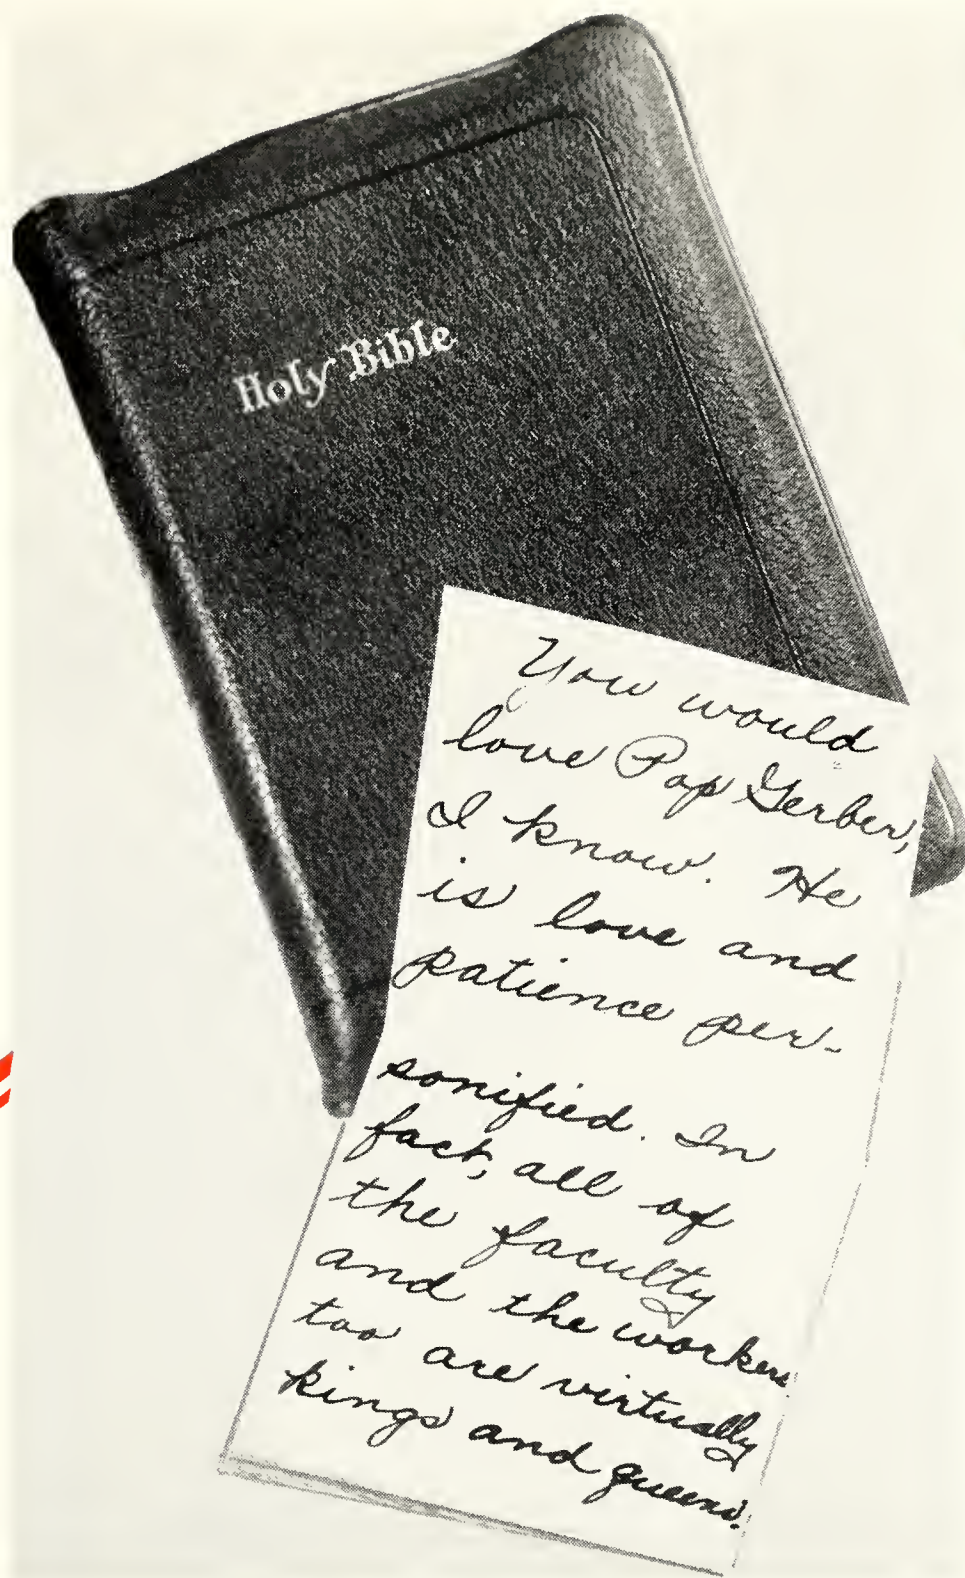 Holy Bible
You would
love Pop Gerber,
I know. He
is love and
patience per-
sonified. In
fact, all of
the faculty
and the workers
too are virtually
kings and queens.